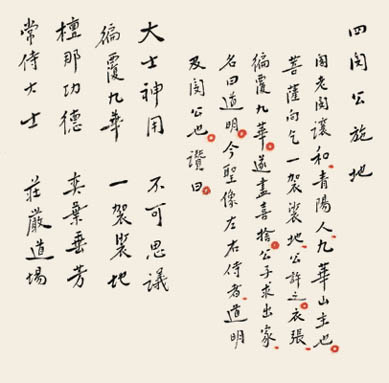 四閔公施地
閣老閔讓和青陽人九華山主也
菩薩向乞一袈裟地公許之衣張
徧覆九華遂盡喜捨公子求出家
名曰道明今聖像左右侍者道明
及閔公也讚曰
大士神用 不可思議
徧覆九華 一袈裟地
檀那功德 奕葉垂芳
常侍大士 莊嚴道場